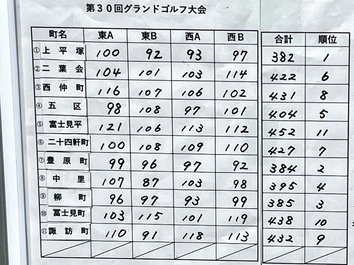 第30回グランドゴルフ大会
町名 東A 東B 西A 西B 合計 順位
① 上平塚 100 92 93 97 382 1
② 二葉会 104 101 103 114 422 6
③ 西仲町 116 107 106 102 431 8
④ 五区 98 108 97 101 404 5
⑤ 富士見平 121 106 113 112 452 11
⑥ 二十四軒町 100 108 109 110 427 7
⑦ 豊原町 99 96 97 92 384 2
⑧ 中里 107 87 103 98 395 4
⑨ 柳町 96 97 93 99 385 3
⑩ 富士見町 103 115 101 119 438 10
⑪ 諏訪町 110 91 118 113 432 9